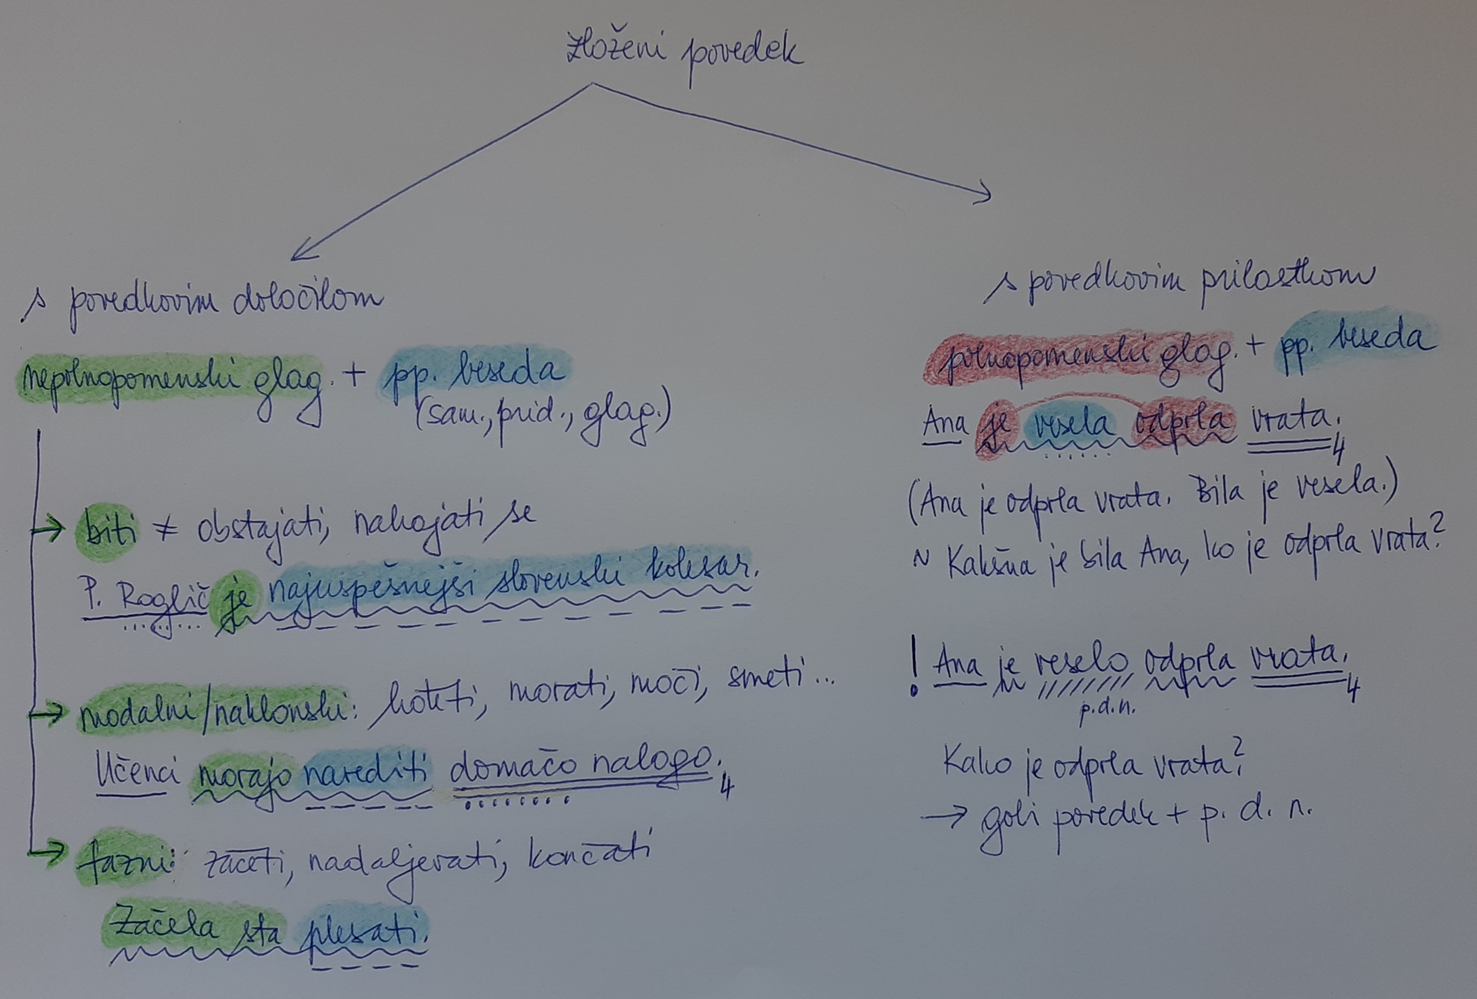 Zloženi povedek
s povedkovim določilom
nepolnopomenski glag. + pp. beseda
(sam., prid., glag.)
biti ≠ obstajati, nahajati se
P. Roglič je najuspešnejši slovenski kolesar.
modalni/naklonski: hoteti, morati, moči, smeti...
Učenci morajo narediti domačo nalogo.
4
fazni: začeti, nadaljevati, končati
Začela sta plesati.
s povedkovim prilastkom
polnopomenski glag. + pp. beseda
Ana je vesela odprla vrata.
4
(Ana je odprla vrata. Bila je vesela.)
~ Kakšna je bila Ana, ko je odprla vrata?
! Ana je veselo odprla vrata.
4
p.d.n.
Kako je odprla vrata?
→ goli povedek + p. d. n.